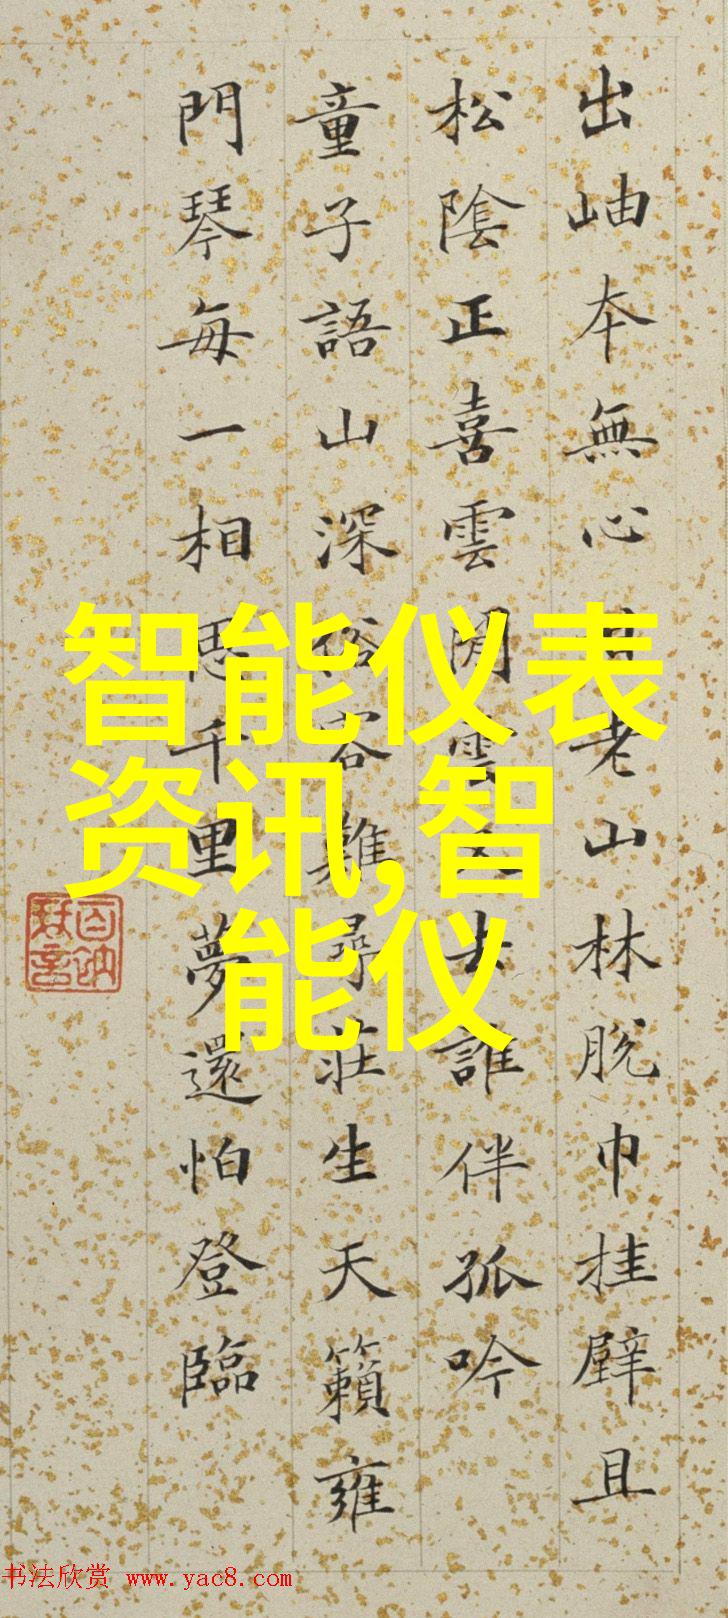 出岫本無心老山林脫巾挂壁且
松陰正喜雲閑雲去誰伴孤吟
童子語山深俗客難尋莊生天籟雍
門琴每一相思千里夢還怕登臨
智能仪表
资讯,智
能仪
书法欣赏 www.yac8.com